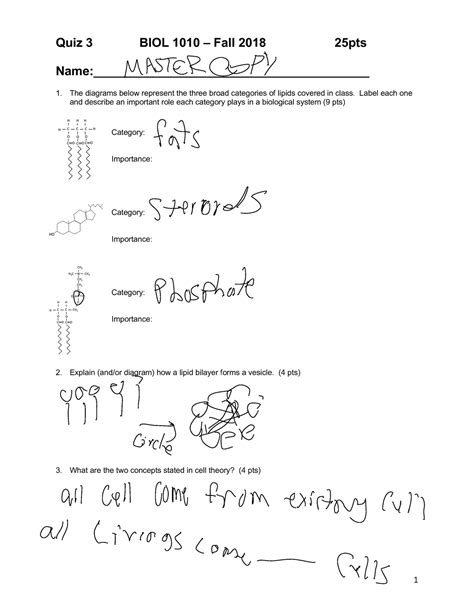 Quiz 3 BIOL 1010 – Fall 2018 25pts
Name: MASTER COPY
1. The diagrams below represent the three broad categories of lipids covered in class. Label each one
and describe an important role each category plays in a biological system (9 pts)
Category: fats
Importance:
Category: Steroids
HO
Importance:
Category: Phosphate
Importance:
2. Explain (and/or diagram) how a lipid bilayer forms a vesicle. (4 pts)
Circle
3. What are the two concepts stated in cell theory? (4 pts)
all Cell Come from existing Cells
all Livings come Cells
1